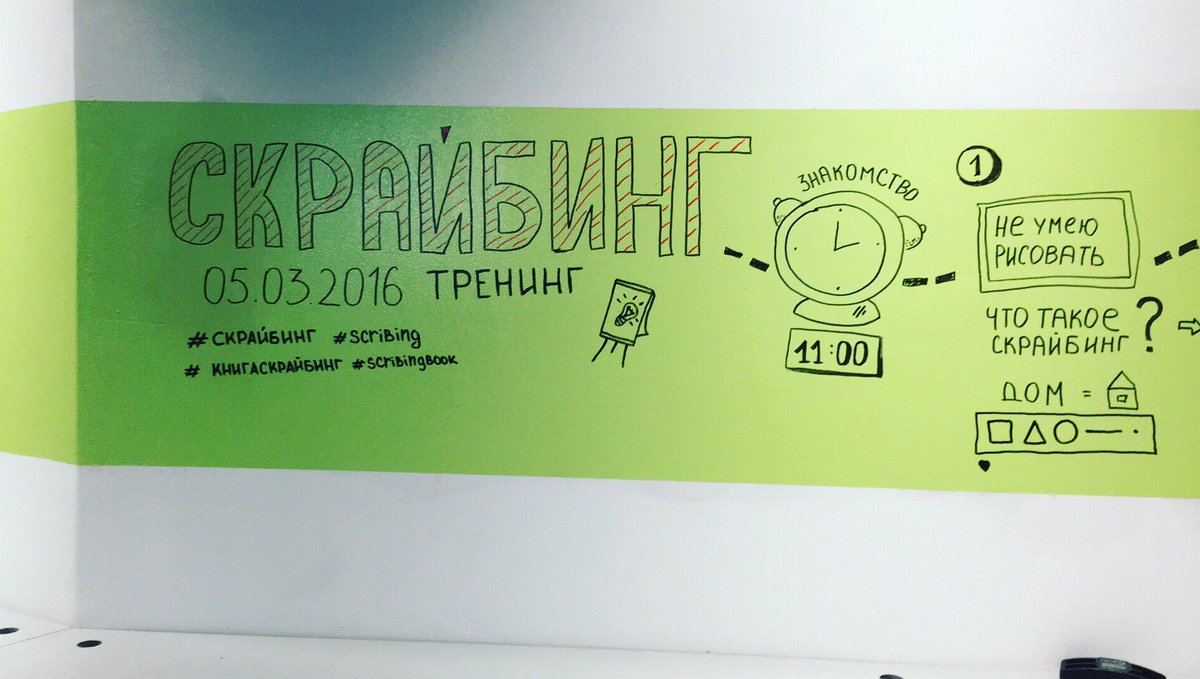 СКРАЙБИНГ
05.03.2016 ТРЕНИНГ
#СКРАЙБИНГ #scribing
# КНИГАСКРАЙБИНГ #scribingbook
ЗНАКОМСТВО
11:00
1
НЕ УМЕЮ
РИСОВАТЬ
ЧТО ТАКОЕ
СКРАЙБИНГ?
ДОМ =